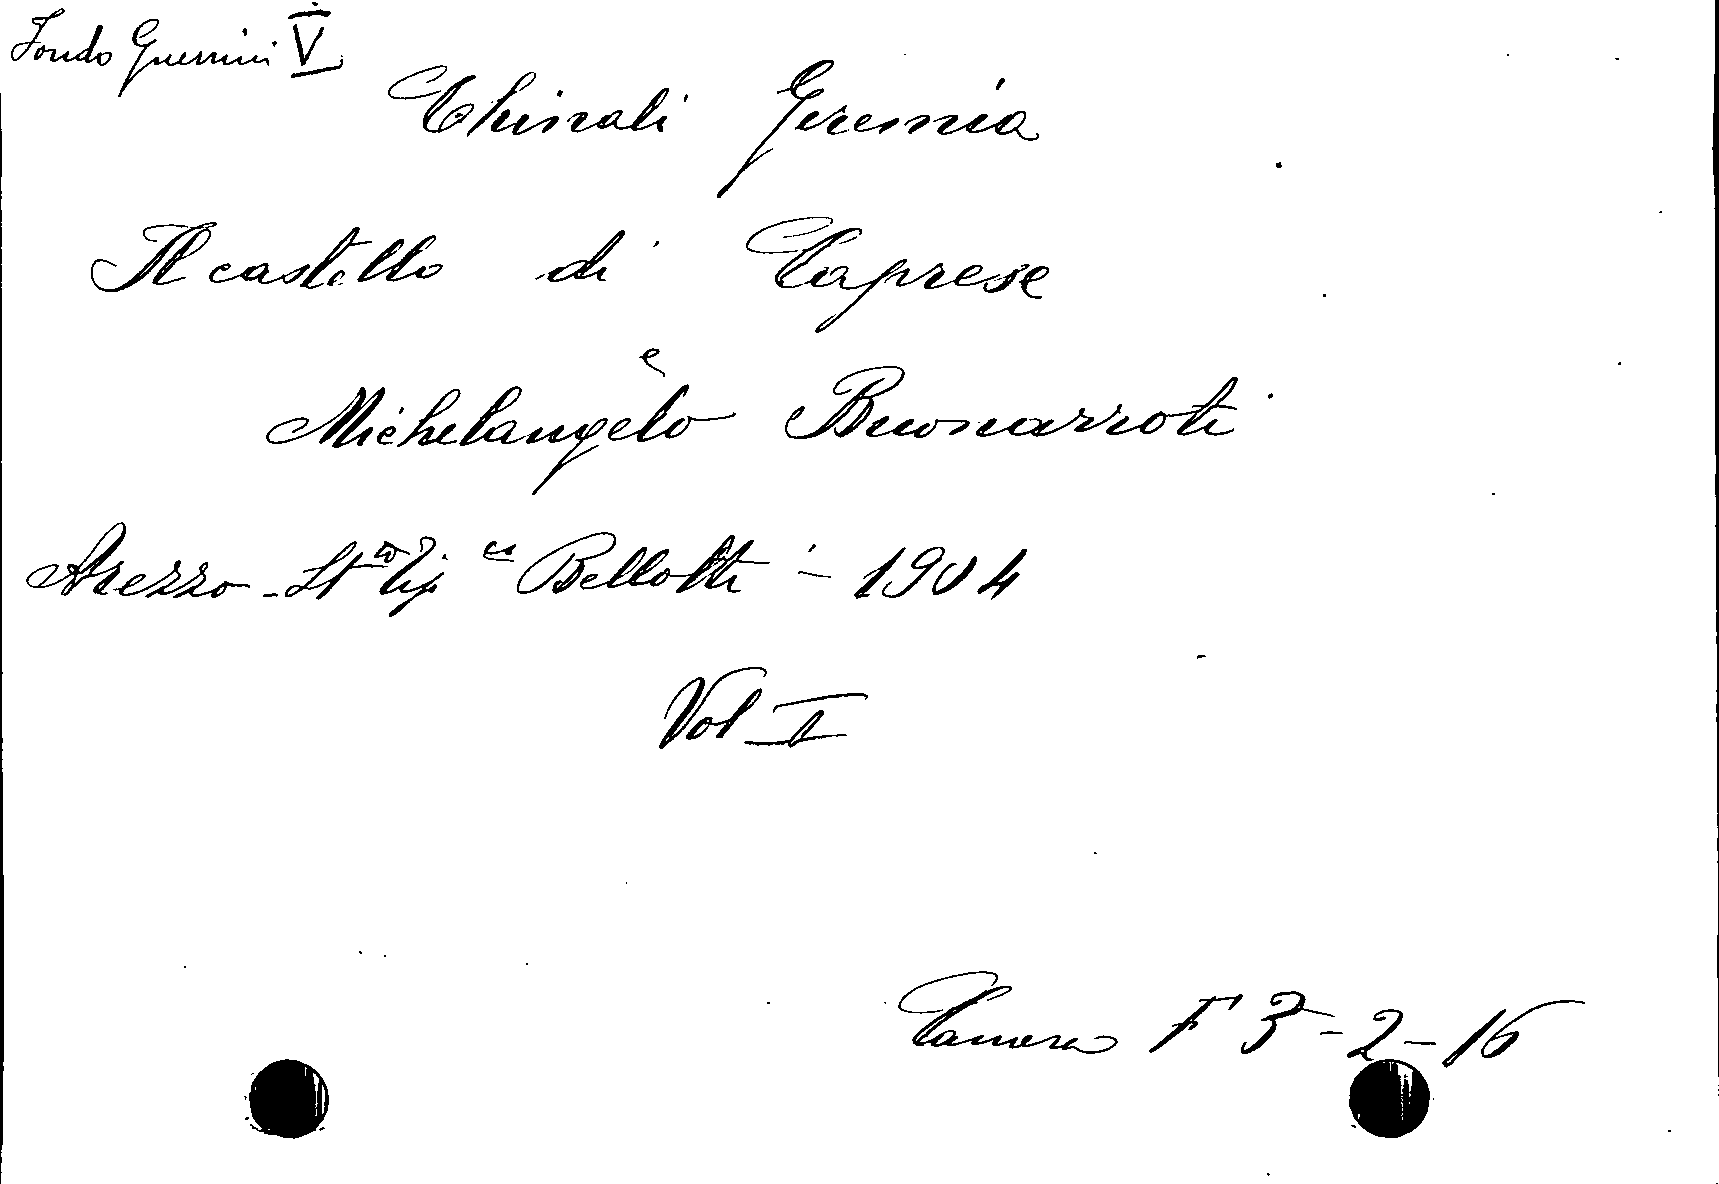 Fondo Guerrini V
Chinali Geremia
Il castello di Caprese
e
Michelangelo Buonarroti
Arezzo - St.to Tip. co Bellotti - 1904
Vol I
Camera F 3 - 2 - 16